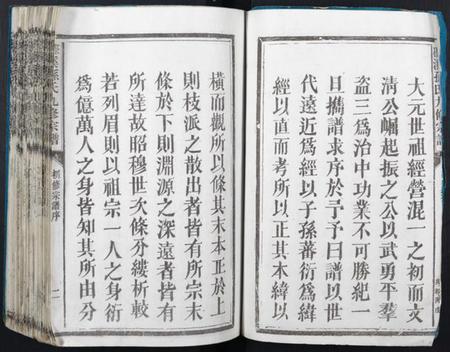 大元世祖經營混一之初而文
清公崛起振之公以武勇平羣
盜三為治中功業不可勝紀一
旦攜譜求序於予予曰譜以世
代遠近為經以子孫蕃衍為緯
經以直而考所以正其本緯以
橫而觀所以條其末本正於上
則枝派之散出者皆有所宗末
條於下則淵源之深遠者皆有
所達故昭穆世次條分縷析較
若列眉則以祖宗一人之身衍
為億萬人之身皆知其所由分
初修宗譜序
二
氏九修宗譜